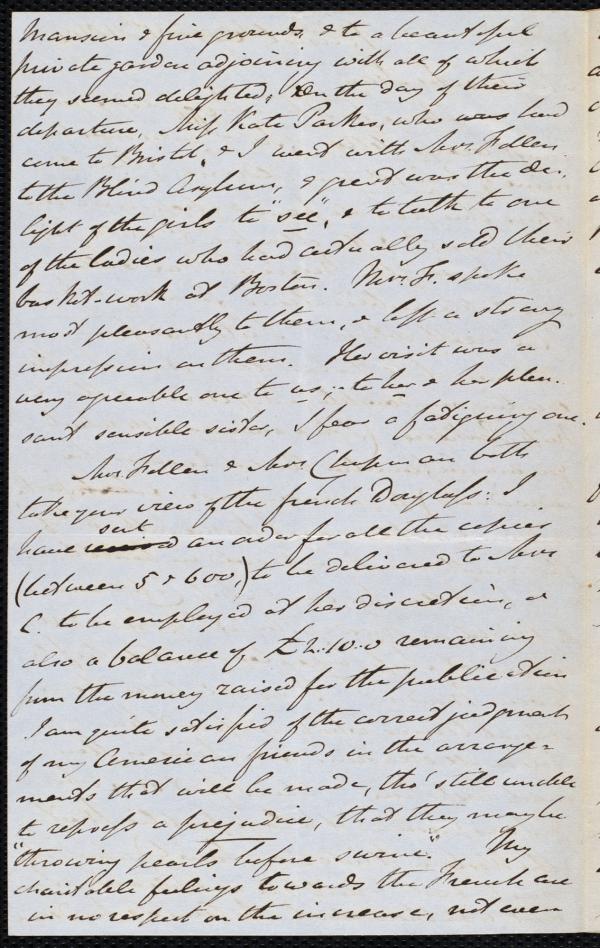 mansion & fine grounds, & to a beautiful
private garden adjoining with all of which
they seemed delighted; On the day of their
departure, Miss Kate Parkes, who was had
come to Bristol, & I went with Mrs. Follen
to the Blind Asylum, & great was the de-
light of the girls to "see", & to talk to one
of the ladies who had actually sold their
basket-work at Boston. Mrs. F. spoke
most pleasantly to them, & left a strong
impression on them. Her visit was a
very agreeable one to us; to her & her plea-
sant sensible sister, I fear a fatiguing one.
Mrs. Follen & Mrs Chapman both
take your view of the french Douglass: I
have sent an order for all the copies
(between 5 & 600,) to be delivered to Mrs
C. to be employed at her discretion, &
also a balance of £2..10..0 remaining
from the money raised for the publication
I am quite satisfied of the correct judgment
of my American friends in the arrange-
ments that will be made, tho' still unable
to repress a prejudice, that they may be
"throwing pearls before swine". My
charitable feelings towards the French are
in no respect on the increase, not even